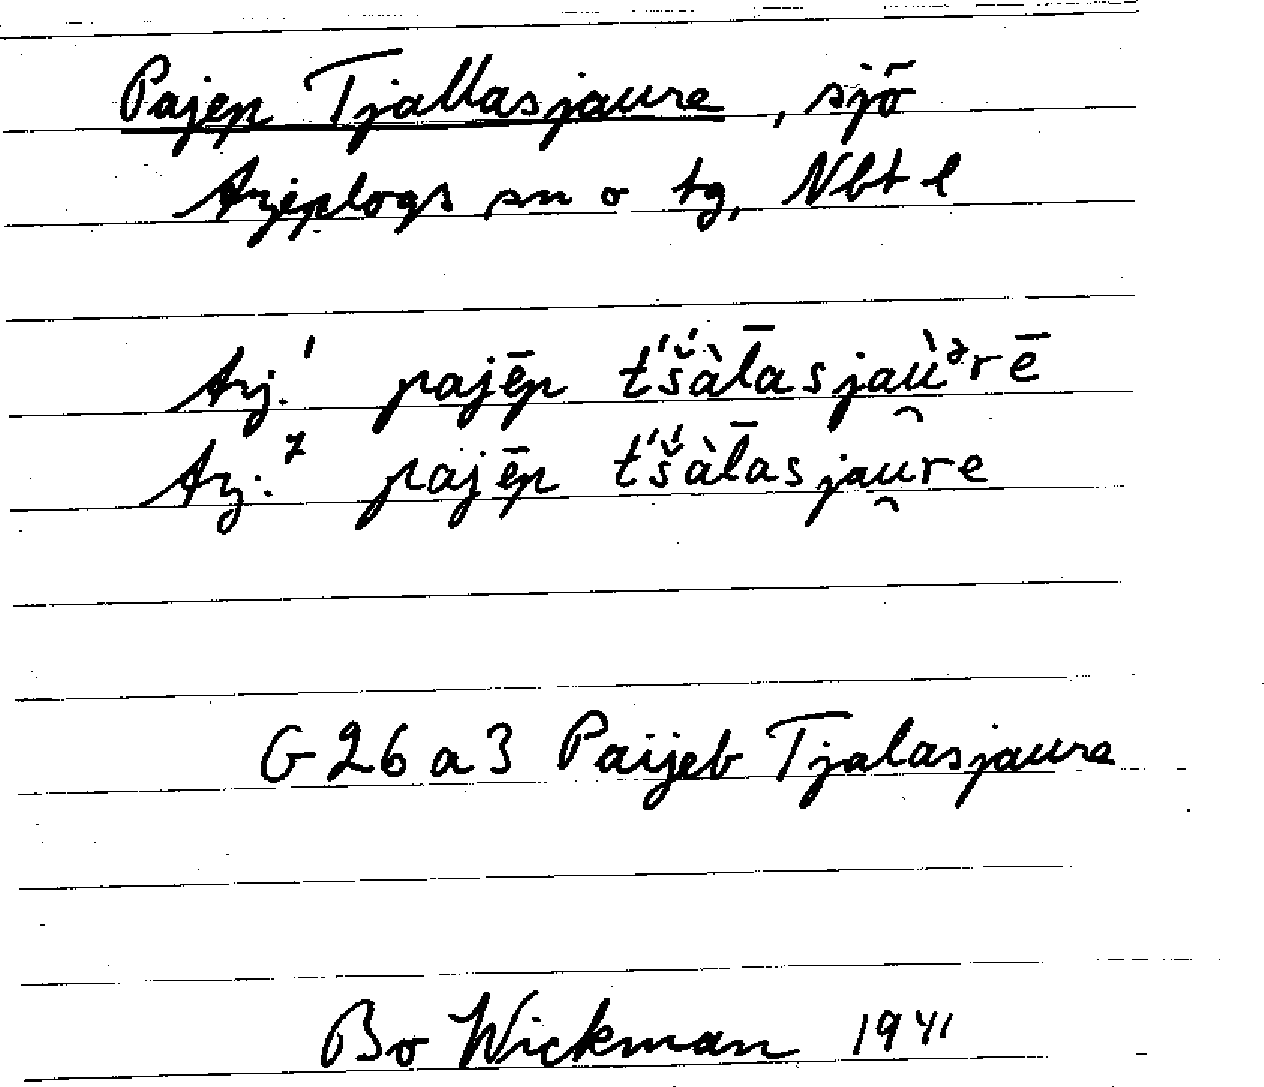 Pajep Tjallasjaure, sjö
Arjeplogs sn o tg, Nbt l
Arj.¹ pajēp t́š́àl̄asjaù̯ᵊrē
Arj.⁷ pajēp t́š́àl̄asjau̯re
G 26 a 3 Paijeb Tjalasjaure
Bo Wickman 1941